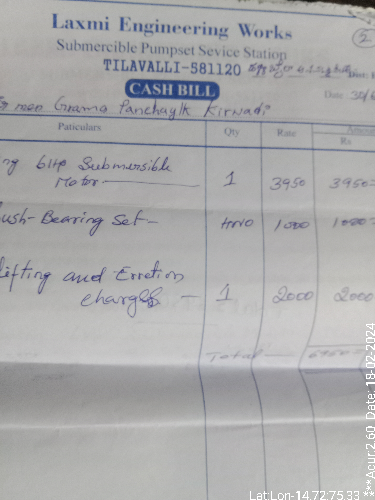 Laxmi Engineering Works
Submercible Pumpset Sevice Station
TILAVALLI-581120
CASH BILL
Date
Grama Panchaylk Kirwadi
Paticulars Qty Rate Amount
Rs
6HP Submersible
Motor — 1 3950 3950=
ush-Bearing Set — 1000 1000=
ifting and Erretion
charges — 1 2000 2000
Total — 6950=
Lat:Lon-14.72:75.33
***Acur:2.60 Date: 18-02-2024